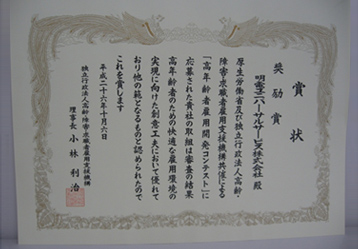 賞状
奨励賞
明電ユニバーサルサービス株式会社 殿
厚生労働省及び独立行政法人高齢・
障害・求職者雇用支援機構共催による
「高年齢者雇用開発コンテスト」に
応募された貴社の取組は審査の結果
高年齢者のための快適な雇用環境の
実現に向けた創意工夫において優れて
おり他の範となるものと認められたので
これを賞します
平成二十六年十月六日
独立行政法人高齢・障害・求職者雇用支援機構
理事長 小林利治